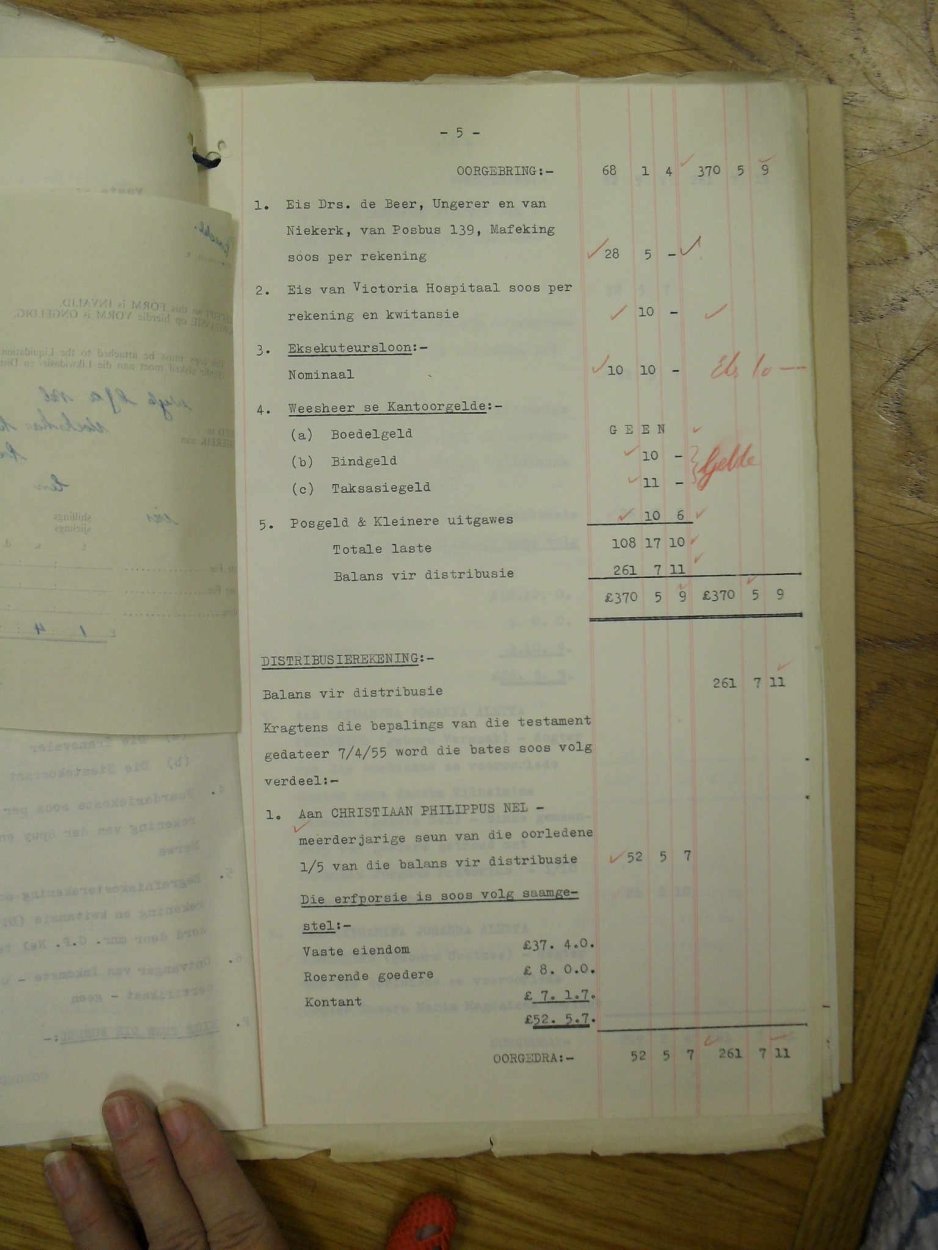 - 5 -
OORGEBRING:- 68 1 4 370 5 9
1. Eis Drs. de Beer, Ungerer en van
Niekerk, van Posbus 139, Mafeking
soos per rekening 28 5 -
2. Eis van Victoria Hospitaal soos per
rekening en kwitansie 10 -
3. Eksekuteursloon:-
Nominaal 10 10 -
4. Weesheer se Kantoorgelde:-
(a) Boedelgeld G E E N
(b) Bindgeld 10 -
(c) Taksasiegeld 11 -
Gelde
5. Posgeld & Kleinere uitgawes 10 6
Totale laste 108 17 10
Balans vir distribusie 261 7 11
£370 5 9 £370 5 9
DISTRIBUSIEREKENING:-
Balans vir distribusie 261 7 11
Kragtens die bepalings van die testament
gedateer 7/4/55 word die bates soos volg
verdeel:-
1. Aan CHRISTIAAN PHILIPPUS NEL -
meerderjarige seun van die oorledene
1/5 van die balans vir distribusie 52 5 7
Die erfporsie is soos volg saamge-
stel:-
Vaste eiendom £37. 4.0.
Roerende goedere £ 8. 0.0.
Kontant £ 7. 1.7.
£52. 5.7.
OORGEDRA:- 52 5 7 261 7 11